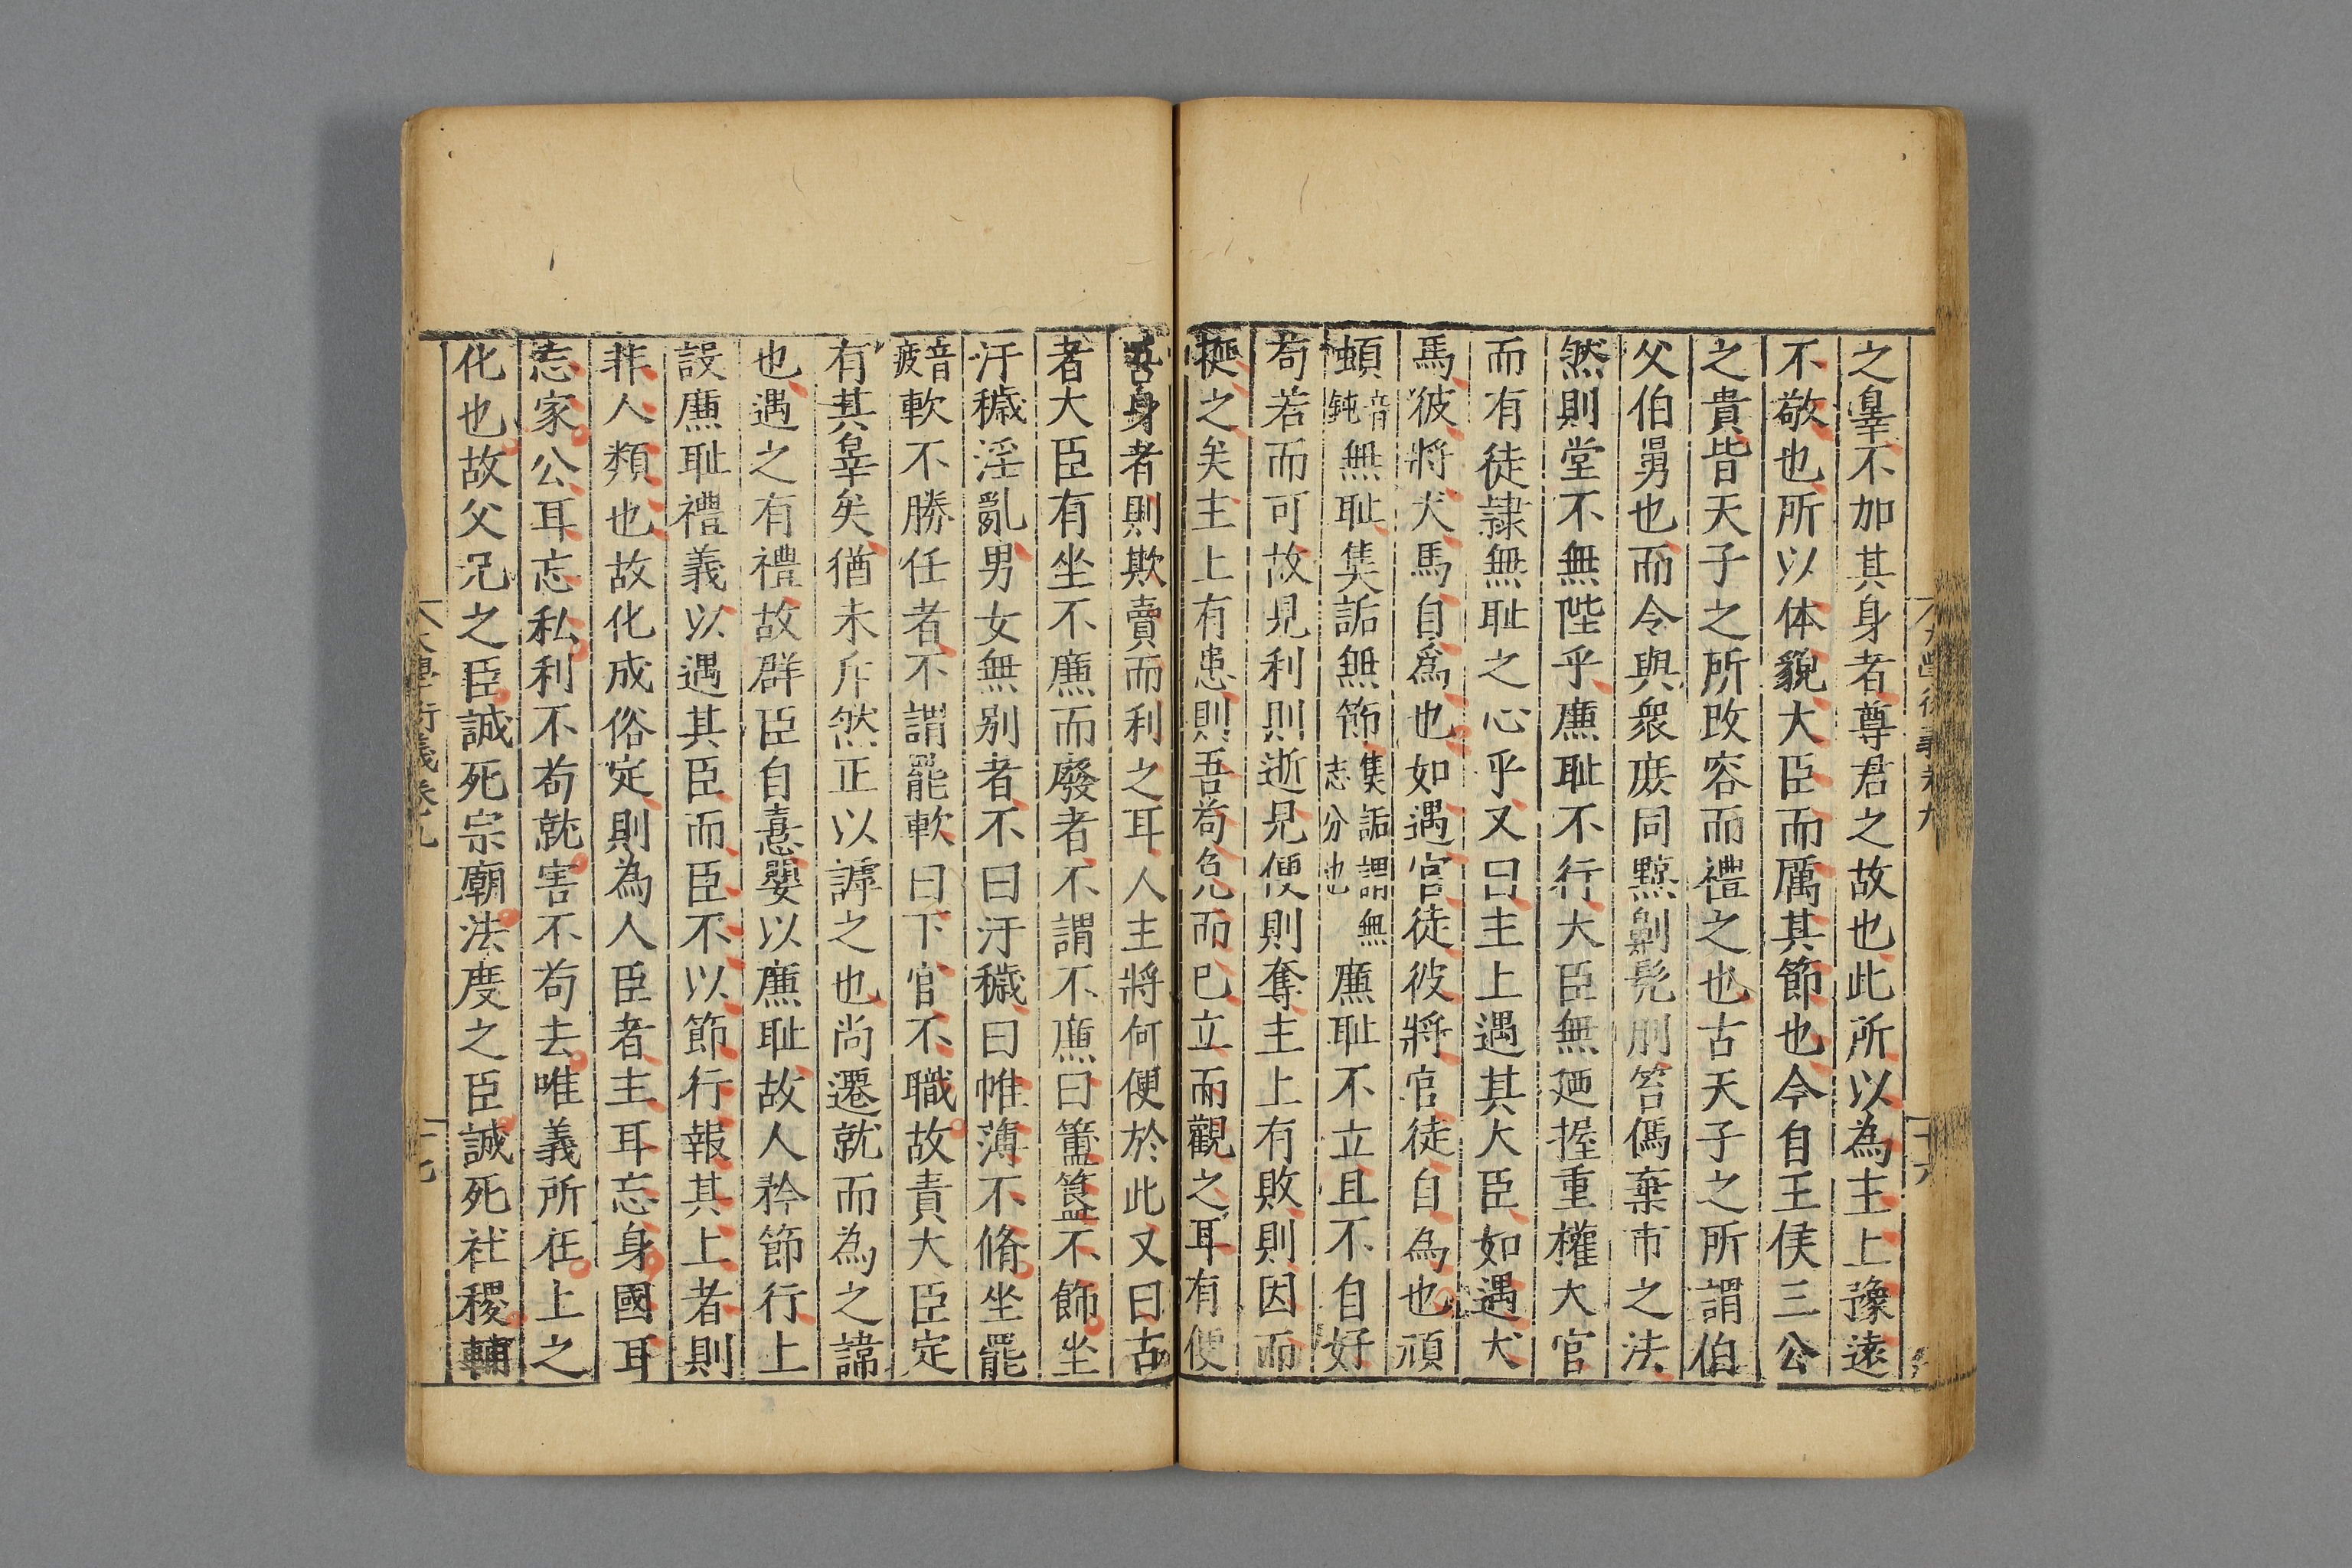 之辠不加其身者尊君之故也此所以為主上豫遠
不敬也所以体貌大臣而厲其節也今自王侯三公
之貴皆天子之所改容而禮之也古天子之所謂伯
父伯舅也而令與衆庶同黥劓髡刖笞傌棄市之法
然則堂不無陛乎廉耻不行大臣無廼握重權大官
而有徒隷無耻之心乎又曰主上遇其大臣如遇犬
馬彼將犬馬自爲也如遇官徒彼將官徒自為也頑
蝢音鈍無耻集詬無節集詬謂無志分也廉耻不立且不自好
苟若而可故見利則逝見便則奪主上有敗則因而
挻之矣主上有患則吾苟免而已立而觀之耳有便
吾身者則欺賣而利之耳人主將何便於此又曰古
者大臣有坐不廉而廢者不謂不廉曰簠簋不飾坐
汙穢淫亂男女無别者不曰汙穢曰帷薄不脩坐罷
音疲軟不勝任者不謂罷軟曰下官不職故責大臣定
有其辠矣猶未斥然正以謼之也尚遷就而為之諱
也遇之有禮故群臣自憙嬰以廉耻故人矜節行上
設廉耻禮義以遇其臣而臣不以節行報其上者則
非人類也故化成俗定則為人臣者主耳忘身國耳
忘家公耳忘私利不苟就害不苟去唯義所在上之
化也故父兄之臣誠死宗廟法度之臣誠死社稷輔